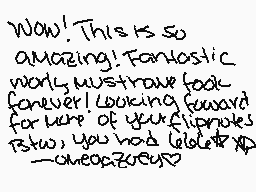 Wow! This is so
amazing! Fantastic
work, must have took
forever! Looking foward
for more of your flipnotes
Btw, you had